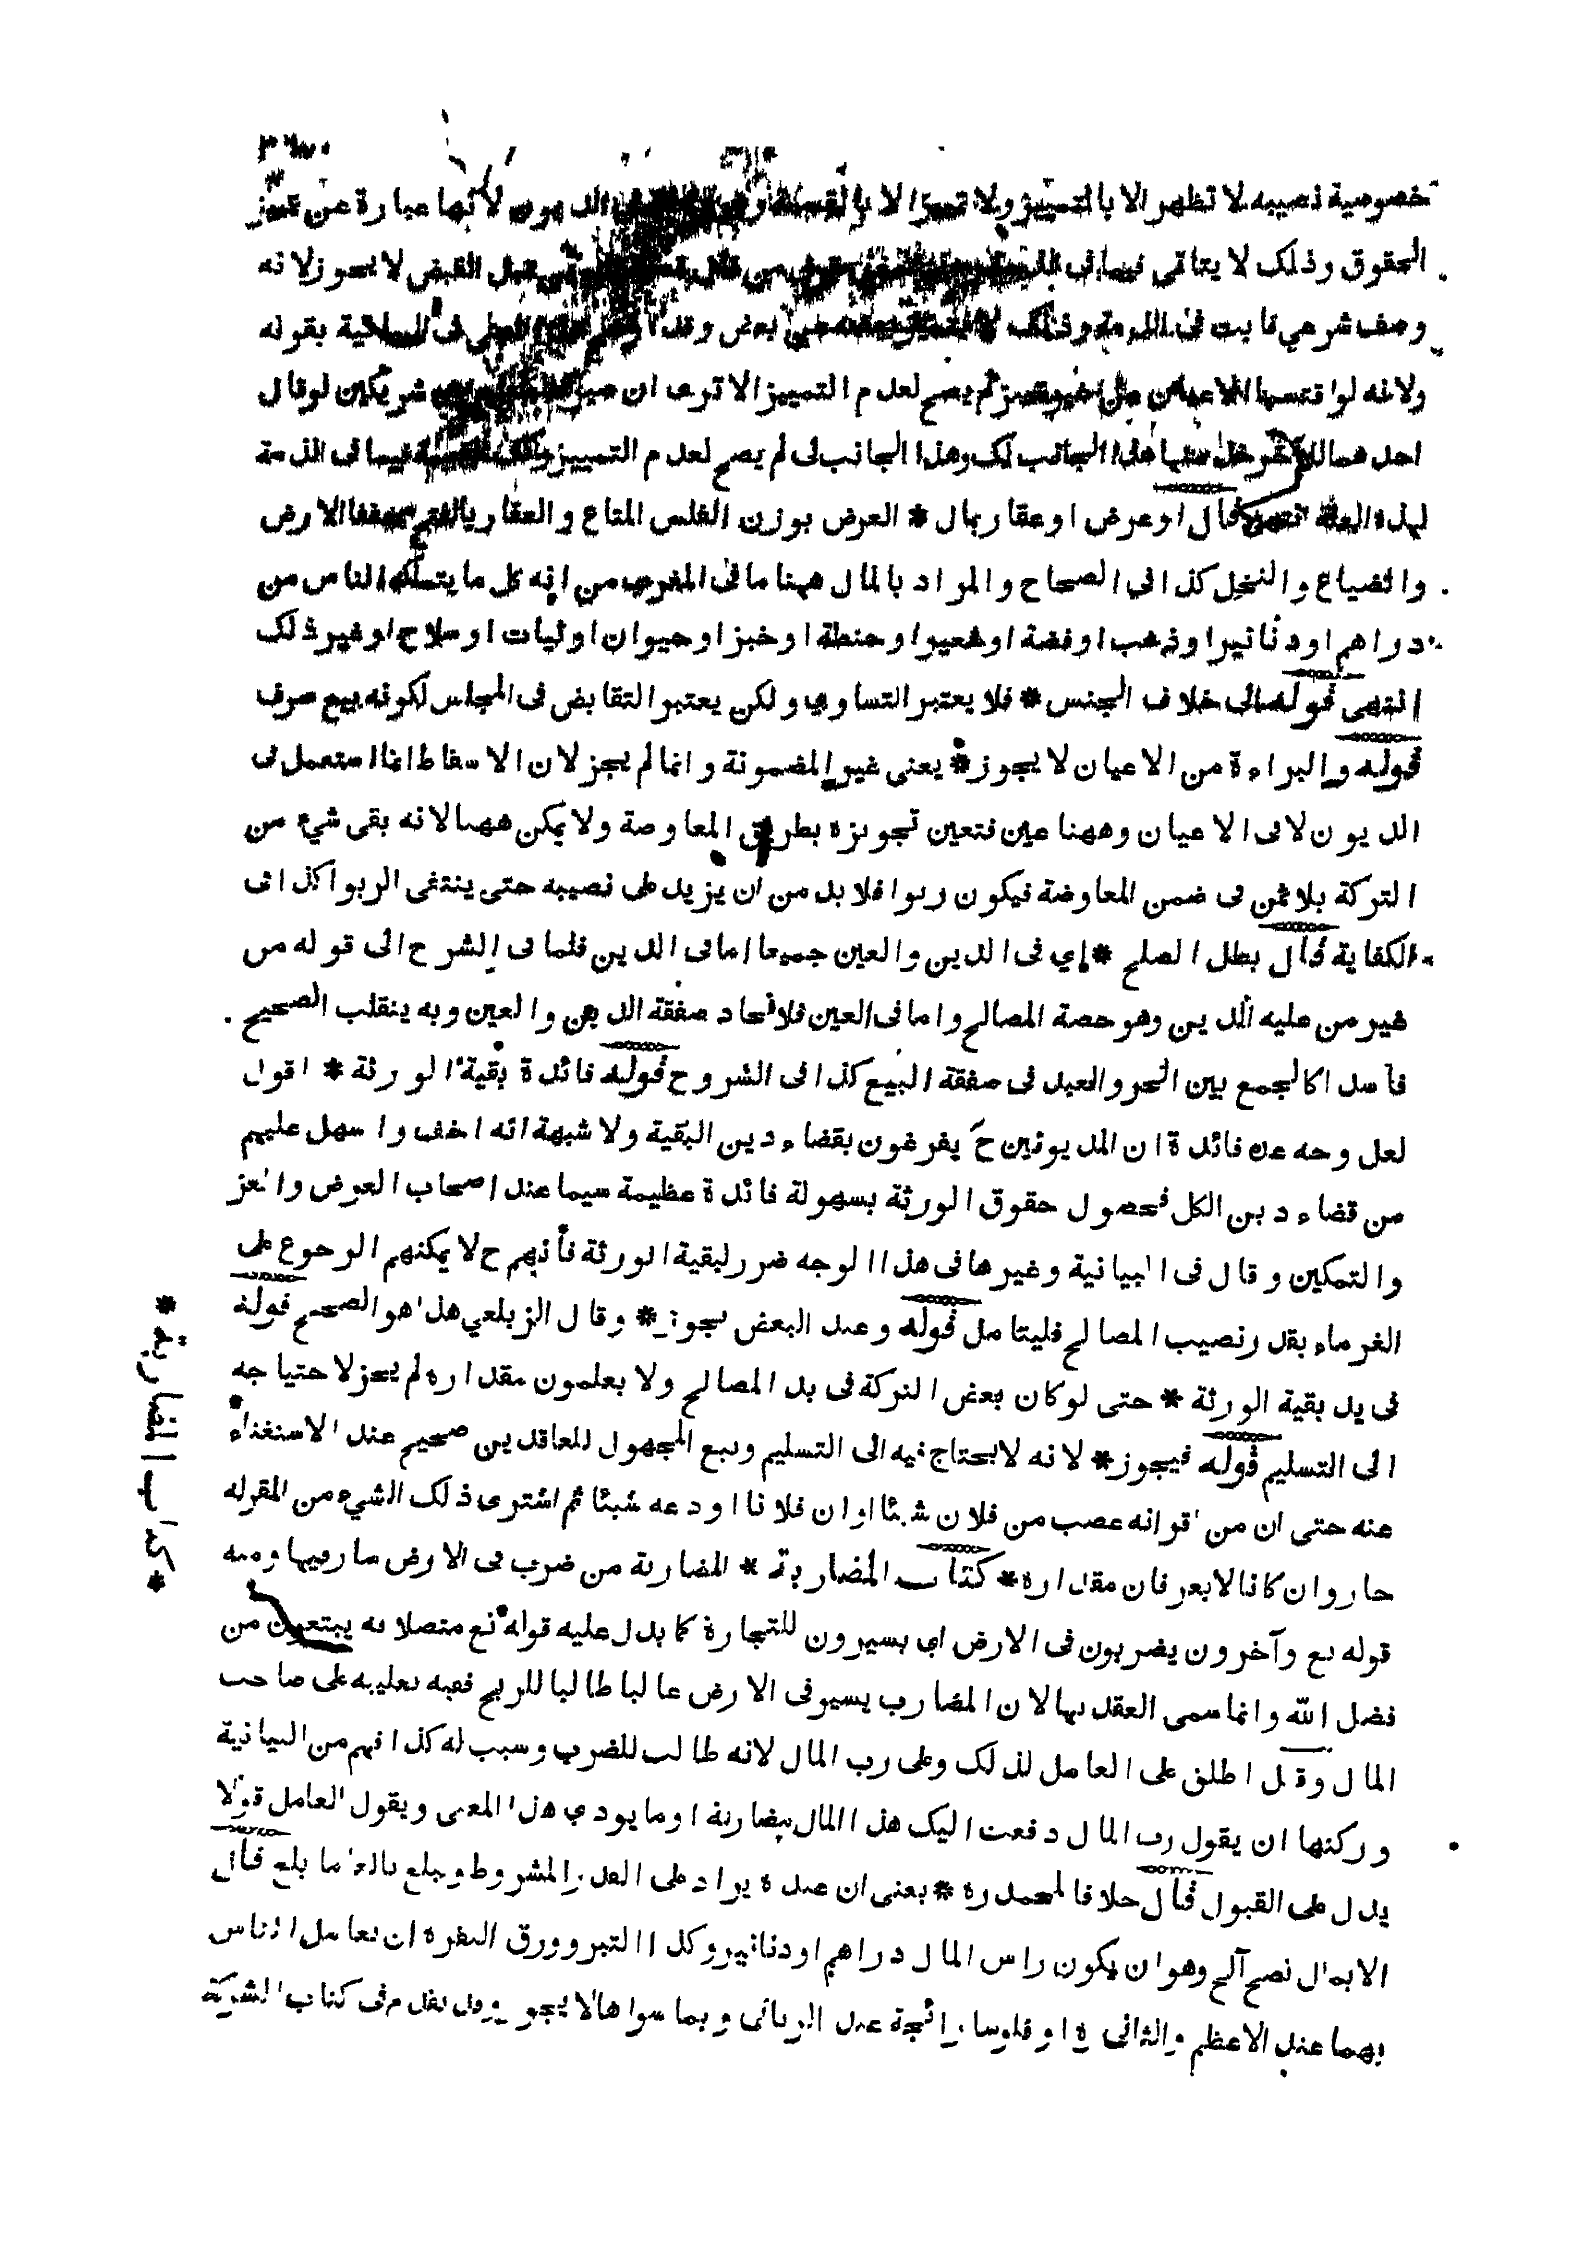 خصوصية نصيبه لا تظهر الا بالتمييز ولا تميز الا بالقسمة الديون لأنها عبارة عن تمييز
الحقوق وذلك لا يتاتى فيما فى قبل القبض لا يجوز لانه
وصف شرعي ثابت فى الذمة وذلك لا بعض وقد فى بقوله
ولانه لو اقتسما الاعيان من غير لم يصح لعدم التمييز الا ترى ان شريكين لو قال
احدهما للآخر هذا الجانب لك وهذا الجانب لى لم يصح لعدم التمييز فيما فى الذمة
لهذه قال او عرض او عقار بمال * العرض بوزن الفلس المتاع والعقار بالفتح الارض
والضياع والنخل كذا في الصحاح والمراد بالمال ههنا ما فى المغرب من انه كل ما يتملكه الناس من
دراهم او دنانير او ذهب او فضة او شعير او حنطة او خبز او حيوان او ثياب او سلاح او غير ذلك
انتهى قوله الى خلاف الجنس * فلا يعتبر التساوي ولكن يعتبر التقابض فى المجلس لكونه بيع صرف
قوله والبراءة من الاعيان لا يجوز * يعنى غير المضمونة وانما لم يجز لان الاسقاط انما استعمل فى
الديون لا فى الاعيان وههنا عين فتعين تجويزه بطريق المعاوضة ولا يمكن ههنا لانه بقى شيء من
التركة بلا ثمن فى ضمن المعاوضة فيكون ربوا فلا بد من ان يزيد على نصيبه حتى ينتفى الربوا كذا فى
الكفاية قال بطل الصلح * اي فى الدين والعين جميعا اما فى الدين فلما فى الشرح الى قوله من
غير من عليه الدين وهو حصة المصالح واما فى العين فلاتحاد صفقة الدين والعين وبه ينقلب الصحيح
فاسدا كالجمع بين الحر والعبد فى صفقة البيع كذا فى الشروح قوله فائدة بقية الورثة * اقول
لعل وجه عدم فائدة ان المديونين ح يفرغون بقضاء دين البقية ولا شبهة انه اخف واسهل عليهم
من قضاء دين الكل فحصول حقوق الورثة بسهولة فائدة عظيمة سيما عند اصحاب العرض والعز
والتمكين وقال فى البيانية وغيرها فى هذا الوجه ضرر لبقية الورثة فأنهم ح لا يمكنهم الرجوع على
الغرماء بقدر نصيب المصالح فليتامل قوله وعند البعض يجوز * وقال الزيلعي هذا هو الصحيح قوله
فى يد بقية الورثة * حتى لو كان بعض التركة فى يد المصالح ولا يعلمون مقداره لم يجز لاحتياجه
الى التسليم قوله فيجوز * لانه لا يحتاج فيه الى التسليم وبيع المجهول للعاقدين صحيح عند الاستغناء
عنه حتى ان من اقر انه غصب من فلان شيئا او ان فلانا اودعه شيئا ثم اشترى ذلك الشيء من المقر له
جاز وان كانا لا يعرفان مقداره * كتاب المضاربة * المضاربة من ضرب فى الارض سار فيها ومنه
قوله تع وآخرون يضربون فى الارض اي يسيرون للتجارة كما يدل عليه قوله تع متصلا به يبتغون من
فضل الله وانما سمى العقد بها لان المضارب يسير فى الارض غالبا طالبا للربح ففيه تغليبه على صاحب
المال وقيل اطلق على العامل لذلك وعلى رب المال لانه طالب للضرب وسبب له كذا فهم من البيانية
وركنها ان يقول رب المال دفعت اليك هذا المال مضاربة او ما يودي هذا المعنى ويقول العامل قولا
يدل على القبول قال خلافا لمحمد ره * يعنى ان عنده يزاد على القدر المشروط ويبلغ بالغا ما بلغ قال
الا بمال تصح آلخ وهو ان يكون راس المال دراهم او دنانير وكذا التبر وورق النقرة ان تعامل الناس
بهما عند الاعظم والثانى ره او فلوسا رائجة عند الربانى وبما سواها لا يجوز وقد تقدم فى كتاب الشركة
* كتاب المضاربة *